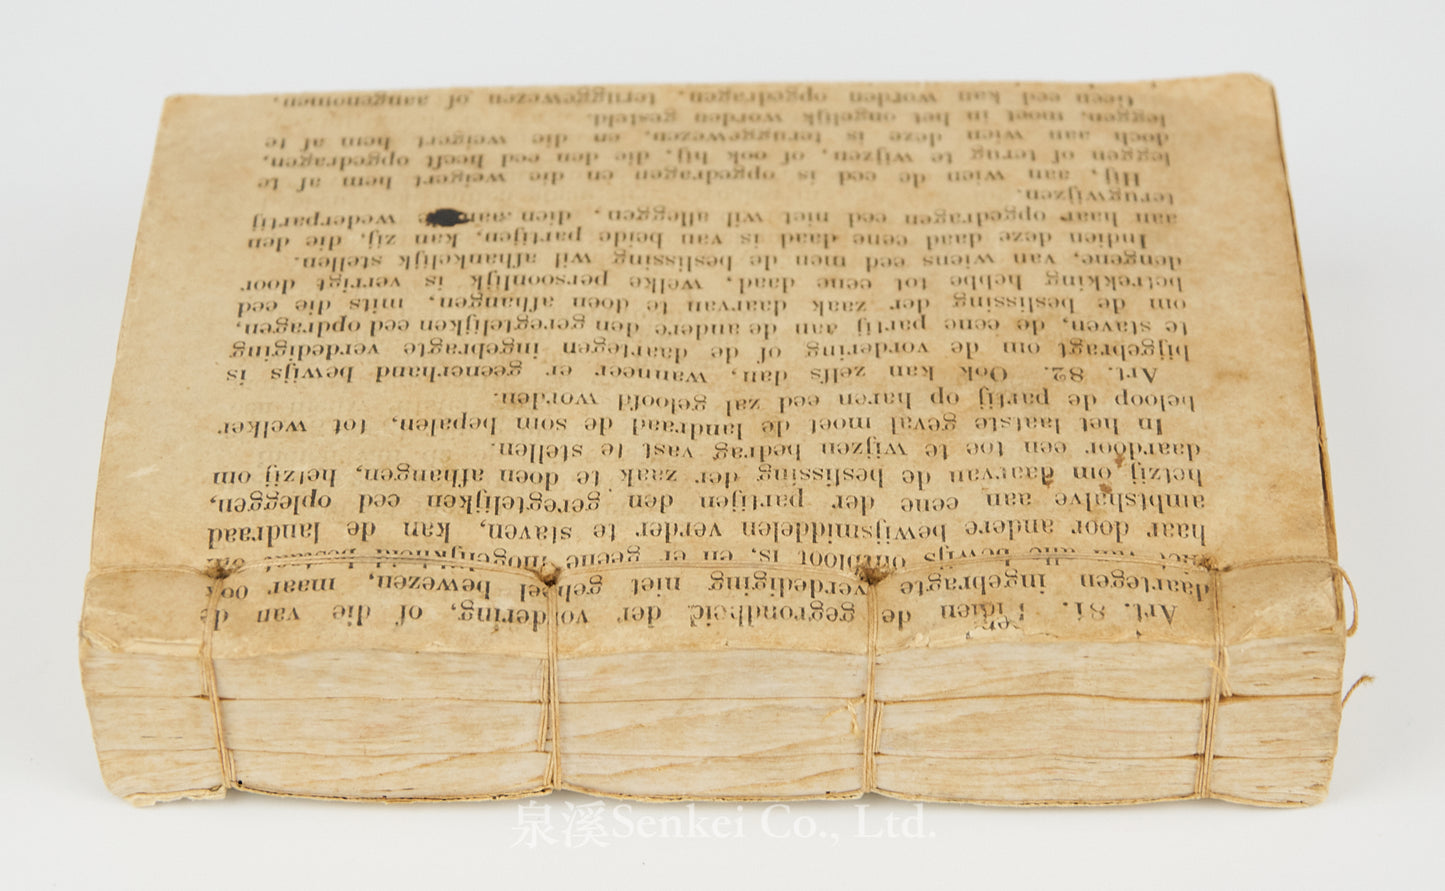 Art. 81. Indien de gegrondheid der vordering, of die van de
daartegen ingebragte verdediging niet geheel bewezen, maar ook
van alle bewijs ontbloot is, en er geene mogelijkheid bestaat om
haar door andere bewijsmiddelen verder te staven, kan de landraad
ambtshalve aan eene der partijen den geregtelijken eed opleggen,
hetzij om daarvan de beslissing der zaak te doen afhangen, hetzij om
daardoor een toe te wijzen bedrag vast te stellen.
In het laatste geval moet de landraad de som bepalen, tot welker
beloop de partij op haren eed zal geloofd worden.
Art. 82. Ook kan zelfs dan, wanneer er geenerhand bewijs is
bijgebragt om de vordering of de daartegen ingebragte verdediging
te staven, de eene partij aan de andere den geregtelijken eed opdragen,
om de beslissing der zaak daarvan te doen afhangen, mits die eed
betrekking hebbe tot eene daad, welke persoonlijk is verrigt door
dengene, van wiens eed men de beslissing wil afhankelijk stellen.
Indien deze daad eene daad is van beide partijen, kan zij, die den
aan haar opgedragen eed niet wil afleggen, dien aan de wederpartij
terugwijzen.
Hij, aan wien de eed is opgedragen en die weigert hem af te
leggen of terug te wijzen, of ook hij, die den eed heeft opgedragen,
doch aan wien deze is teruggewezen, en die weigert hem af te
leggen, moet in het ongelijk worden gesteld.
Geen eed kan worden opgedragen, teruggewezen of aangenomen,
泉溪Senkei Co., Ltd.